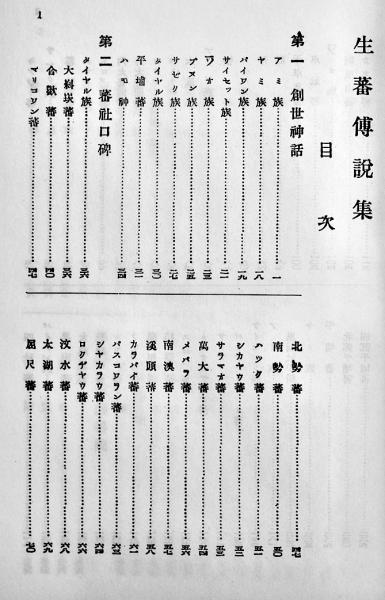 1
生蕃傳說集
目次
第一 創世神話
アミ族……一
ヤミ族……一八
パイワン族……一九
サイセット族……二一
ツォオ族……二三
ブヌン族……二五
サゼク族……二七
タイヤル族……三〇
平埔蕃……三一
ハモ神……三四
第二 蕃社口碑
タイヤル族……三六
大嵙崁蕃……三六
合歡蕃……四〇
マリコワン蕃……四七
北勢蕃……四七
南勢蕃……五〇
ハック蕃……五一
シカヤウ蕃……五三
サラマオ蕃……五三
萬大蕃……五四
メバラ蕃……五六
南澳蕃……五七
溪頭蕃……五八
カラパイ蕃……六一
パスコワラン蕃……六三
シヤカラウ蕃……六四
ロクデヤウ蕃……六六
汶水蕃……六八
太湖蕃……六九
屈尺蕃……七〇